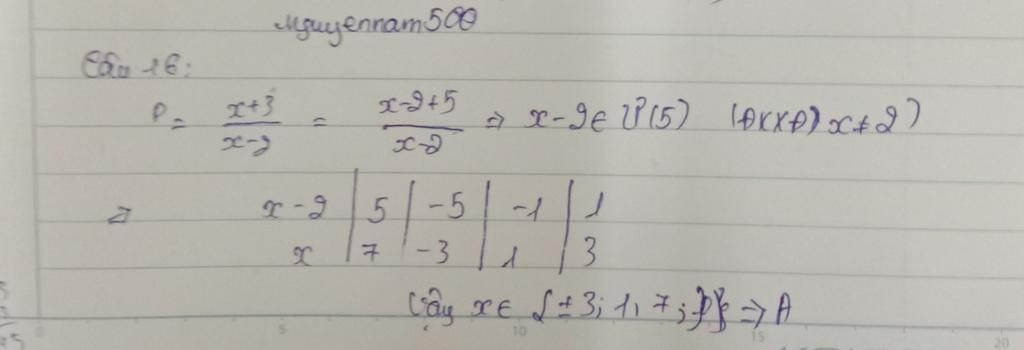 Nguyennam500
Câu 16:
P = \frac{x+3}{x-2} = \frac{x-2+5}{x-2} => x-2 ∈ Ư(5) (ĐKXĐ) x ≠ 2)
=> x-2 | 5 | -5 | -1 | 1
x | 7 | -3 | 1 | 3
Vậy x ∈ {±3; 1; 7; } => A
0 5 10 15 20